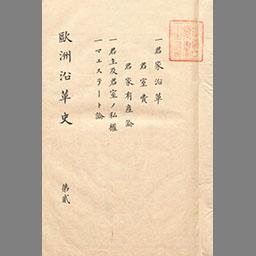 一君家沿革
君室費
君家有産論
一君主及君室ノ私權
一マエステート論
歐洲沿革史
第貳